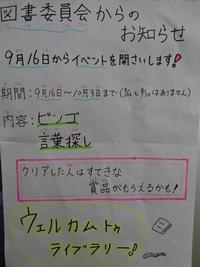 図書委員会からの
お知らせ
9月16日からイベントを開さいします!
期間:9月16日〜10月3日まで(はありません)
内容:ビンゴ
言葉探し
クリアした人はすてきな
賞品がもらえるかも!
ウェルカムトゥ
ライブラリー!